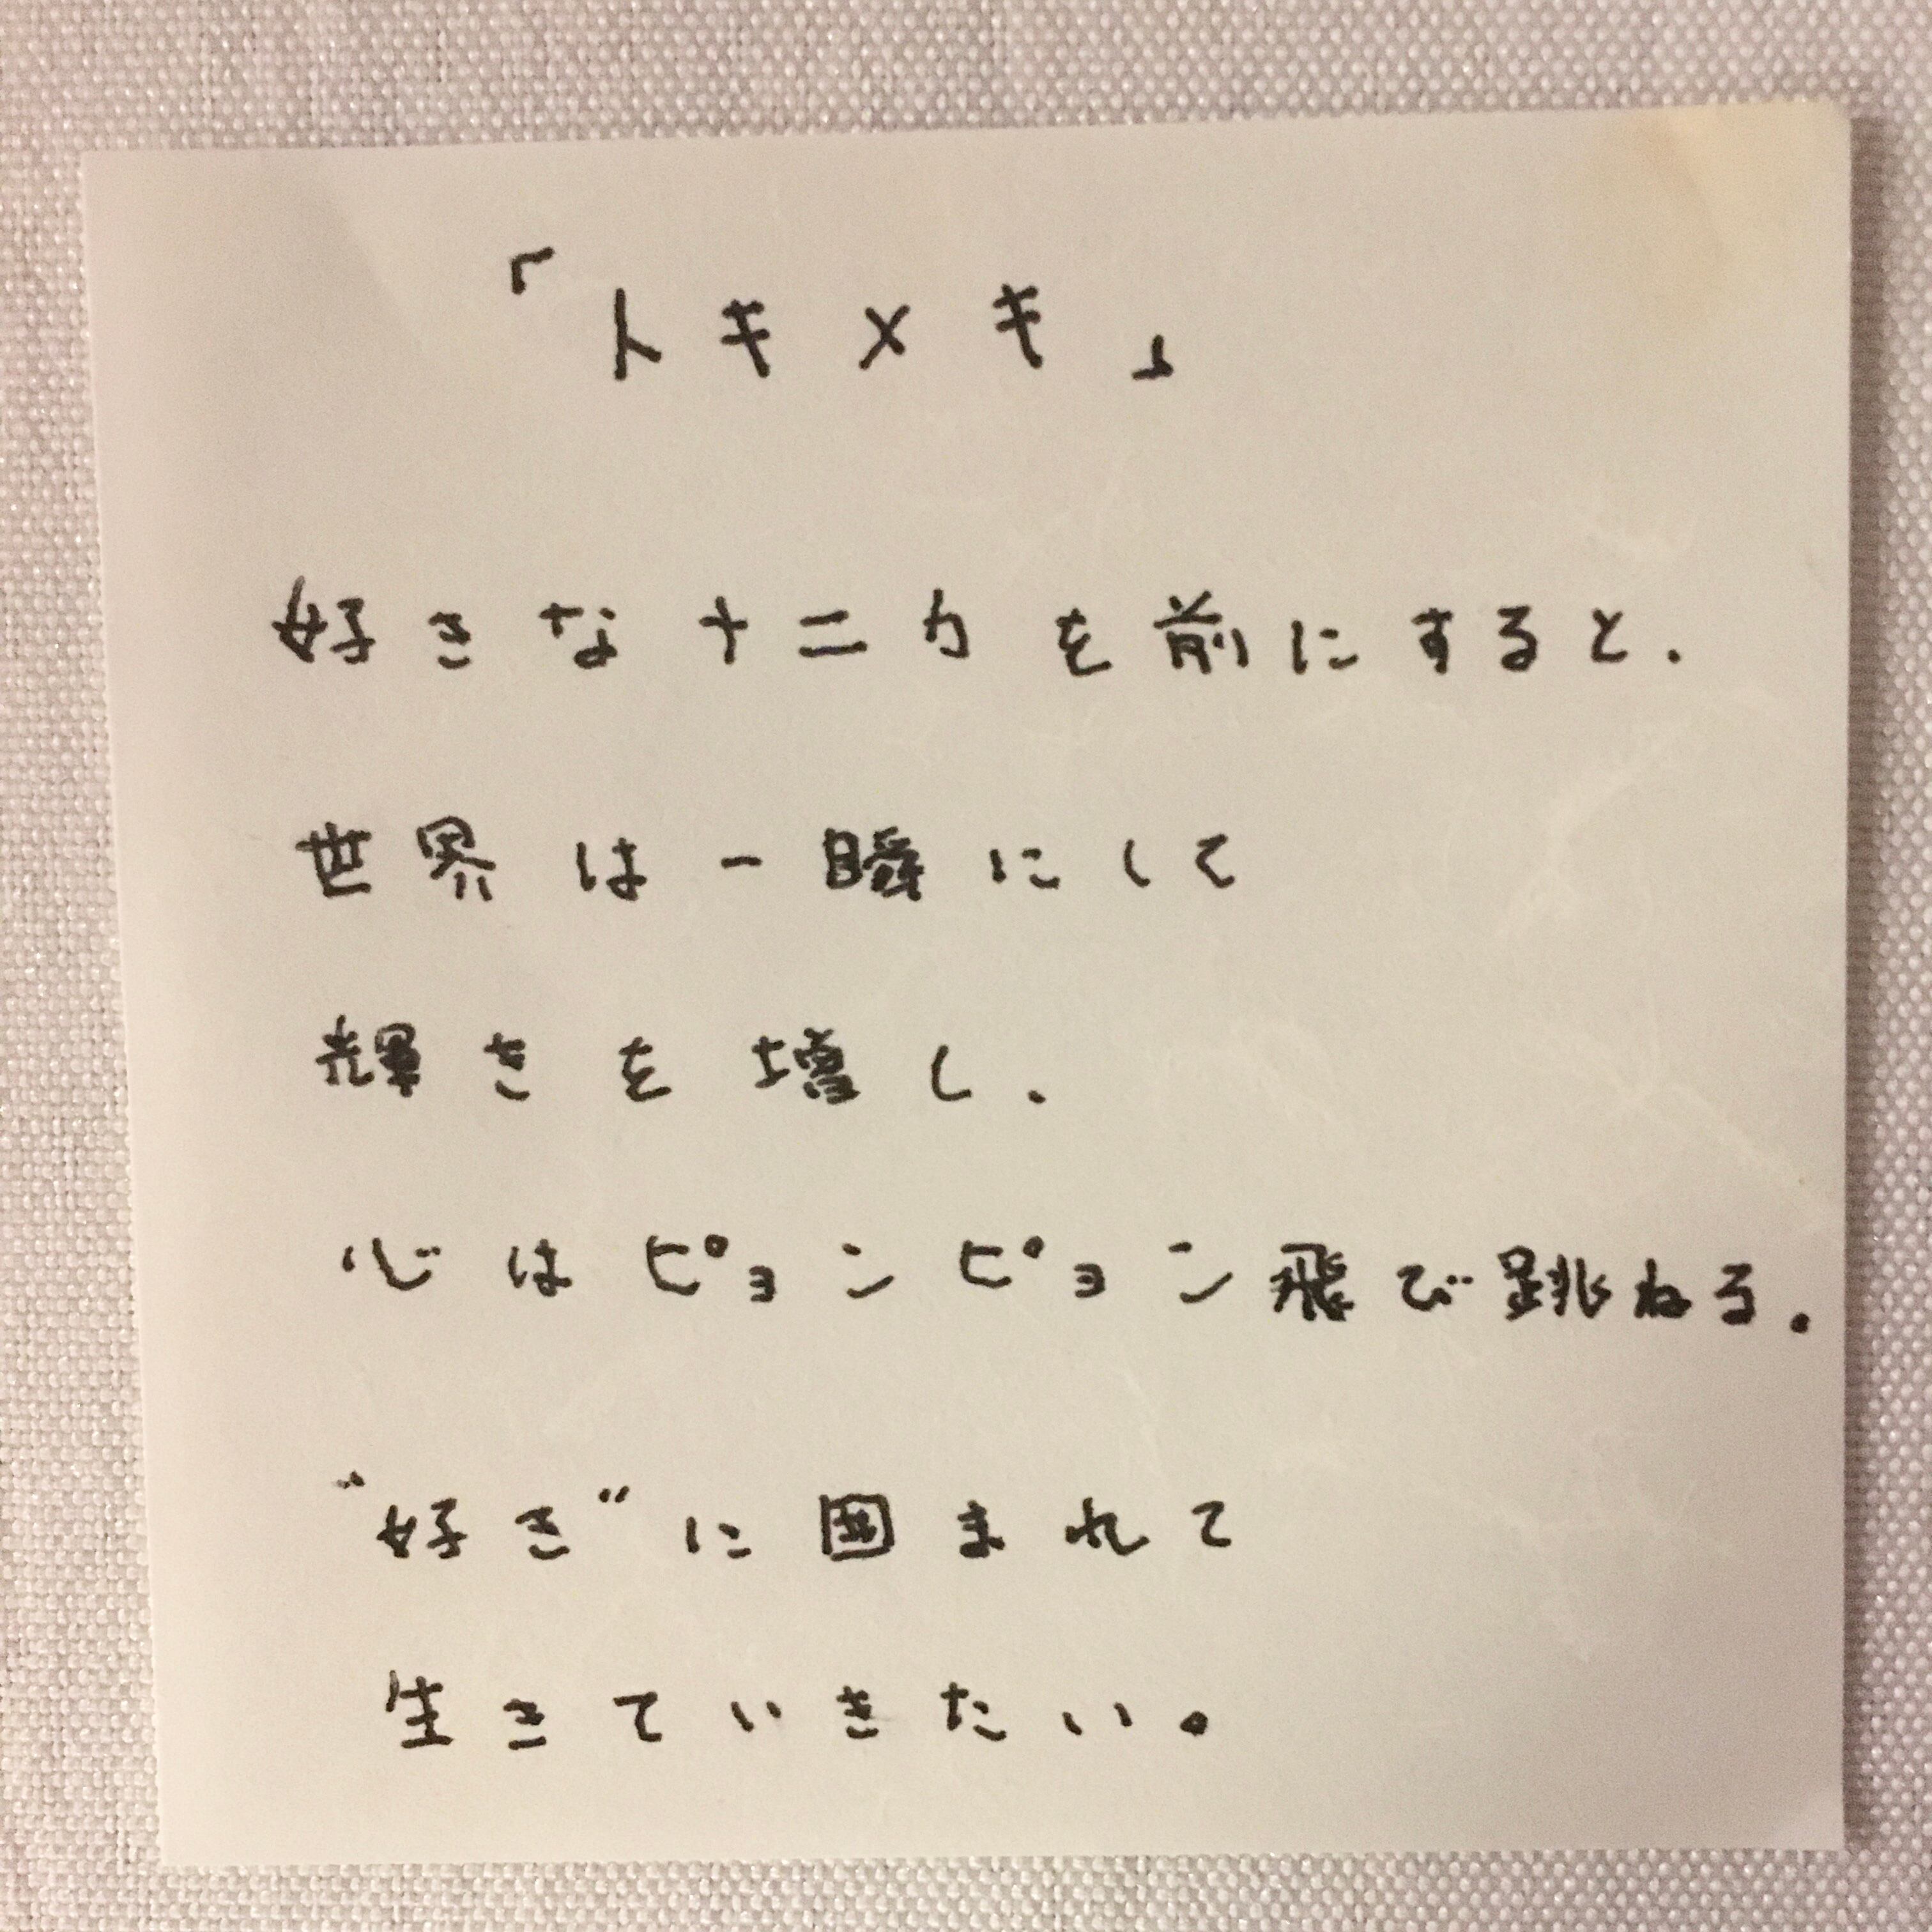 「トキメキ」
好きなナニカを前にすると、
世界は一瞬にして
輝きを増し、
心はピョンピョン飛び跳ねる。
"好き"に囲まれて
生きていきたい。